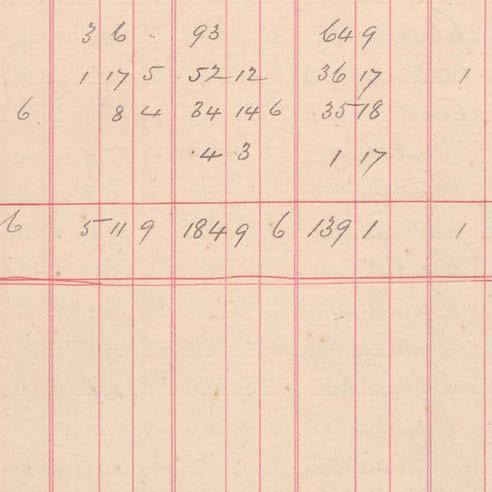 3 6 .. 93 64 9
1 17 5 52 12 36 17 1
6 8 4 34 14 6 35 18
4 3 1 17
6 5 11 9 184 9 6 139 1 1